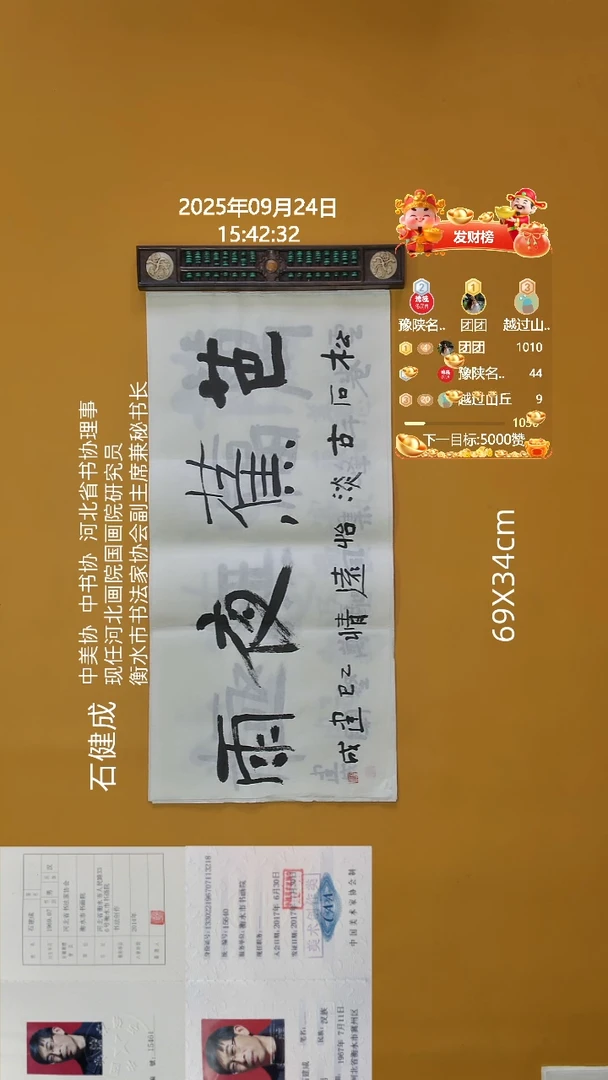 2025年09月24日
15:42:32
发财榜
豫陕名..
团团
越过山..
团团 1010
豫陕名.. 44
越过山丘 9
下一目标:5000赞
石健成
中美协 中书协 河北省书协理事
现任河北画院国画院研究员
衡水市书法家协会副主席兼秘书长
69X34cm
芭蕉夜雨
松石古淡怡遠情乙巳建成
中国美术家协会制